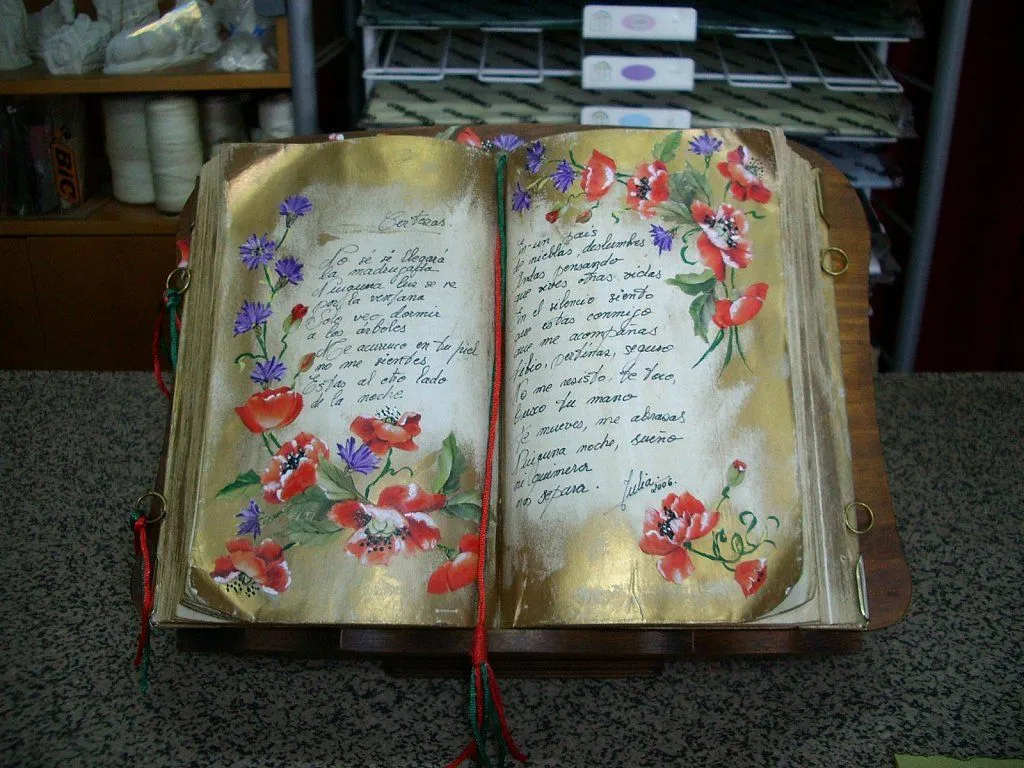 Certezas.
No se si llegará
la madrugada
Ninguna luz se ve
por la ventana
Solo veo dormir
a los árboles
Me acurruco en tu piel
no me sientes
Estas al otro lado
de la noche
En un pais
de nieblas, deslumbres
Andas pensando
que vives otras vidas
En el silencio siento
que estas conmigo
que me acompañas
tibio, pertinaz, seguro
No me resisto, te toco,
busco tu mano
Te mueves, me abrazas
Ninguna noche, sueño
ni quimera
nos separa.
Julia 2006.
BIC